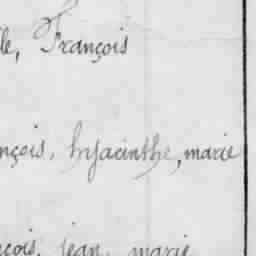 le, François
nçois, hyacinthe, marie
nçois, jean, marie